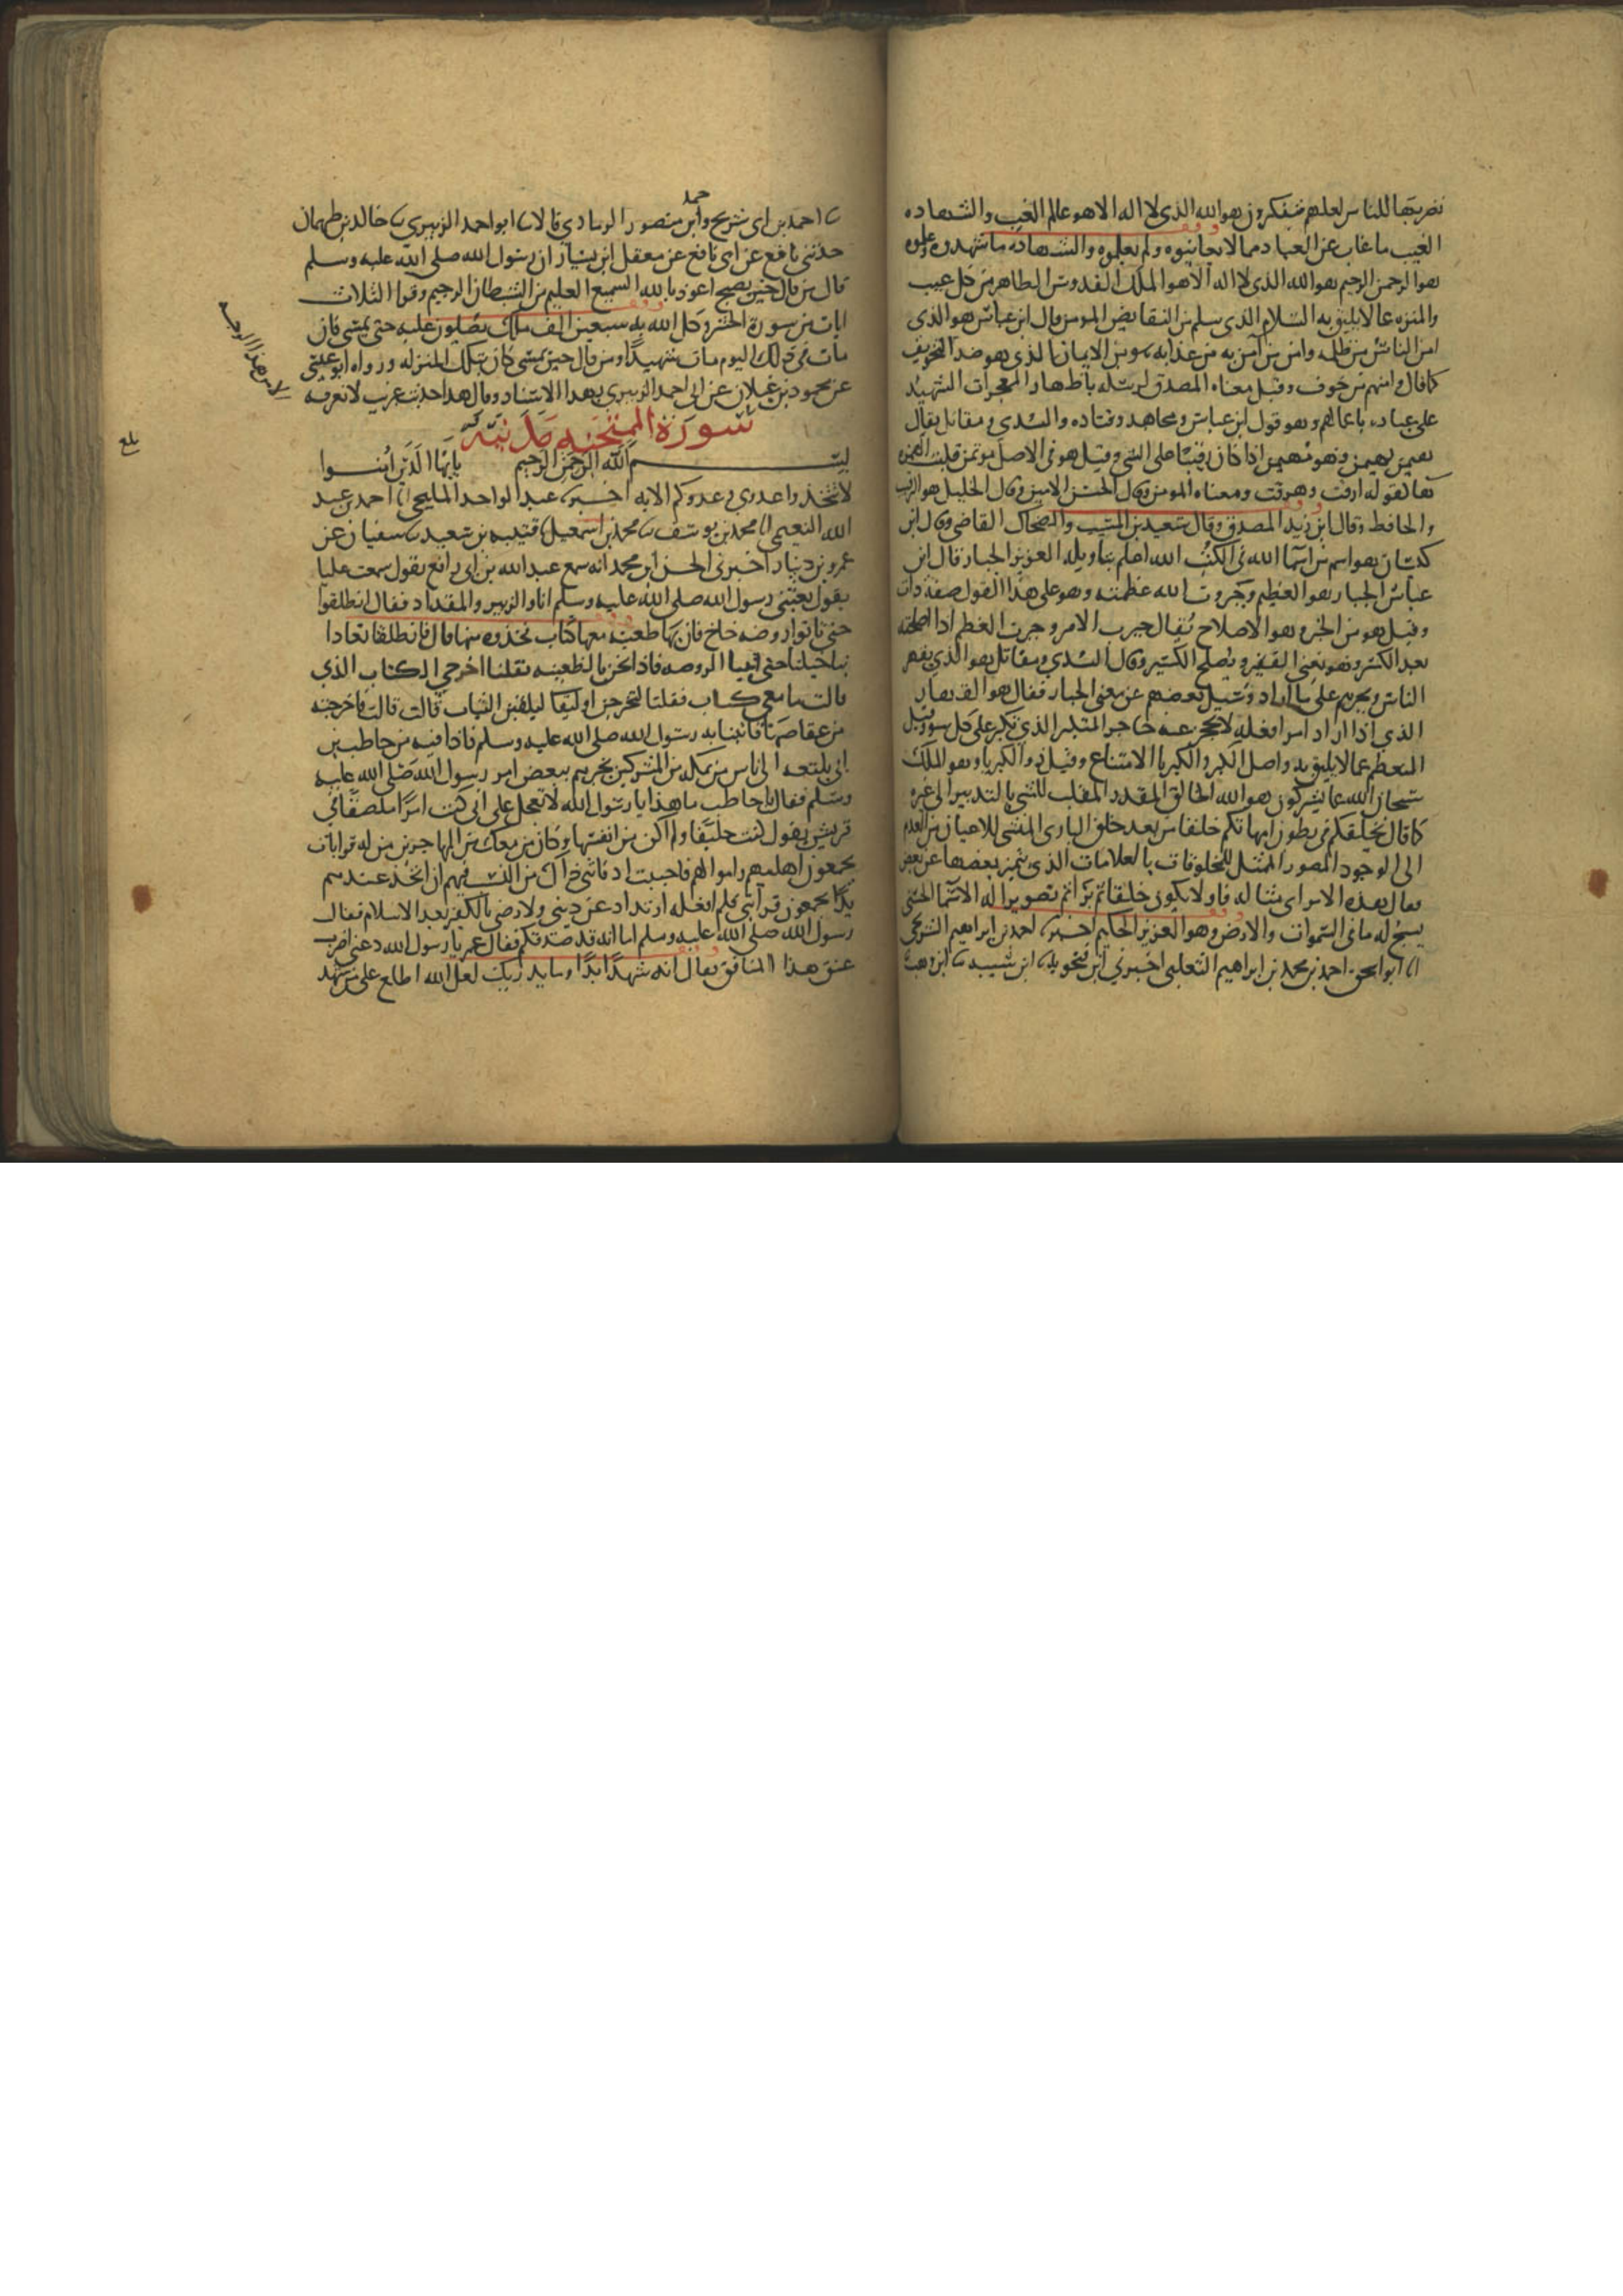 نضربها للناس لعلهم يتفكرون هو الله الذي لا اله الا هو عالم الغيب والشهاده
الغيب ما غاب عن العباد مما لا يعاينوه ولم يعلموه والشهاده ما شهدوه وعلموه
هو الرحمن الرحيم هو الله الذي لا اله الا هو الملك القدوس الطاهر من كل عيب
والمنزه عما لا يليق به السلام الذي سلم من النقايض المومن قال ابن عباس هو الذي
امن الناس من ظلمه وامن من آمن به من عذابه هو من الايمان الذي هو ضد التخويف
كما قال وامنهم من خوف وقيل معناه المصدق لرسله باظهار المعجزات الشهيد
على عباده باعمالهم وهو قول ابن عباس ومجاهد وقتاده والسدي ومقاتل يقال
هيمن يهيمن وهو مهيمن اذا كان رقيبا على الشي وقيل هو في الاصل موتمن قلبت الهمزه
ها كقوله ارقت وهرقت ومعناه المومن وقال الحسن الامين وقال الخليل هو الرقيب
والحافظ وقال ابن زيد المصدق وقال سعيد بن المسيب والضحاك القاضي وقال ابن
كيسان هو اسم من اسما الله في الكتب الله اعلم بتاويله العزيز الجبار قال ابن
عباس الجبار هو العظيم وجبروت الله عظمته وهو على هذا القول صفة ذات
وقيل هو من الجبر وهو الاصلاح يقال جبرت الامر وجبرت العظم اذا اصلحته
بعد الكسر وهو يغني الفقير ويصلح الكسير وقال السدي ومقاتل هو الذي يقهر
الناس ويجبرهم على ما اراد وسيل بعضهم عن معنى الجبار فقال هو القهار
الذي اذا اراد امرا فعله لا يحجزه عنه حاجز المتكبر الذي تكبر على كل سوء وقيل
المتعظم عما لا يليق به واصل الكبر والكبريا الامتناع وقيل ذو الكبريا وهو الملك
سبحان الله عما يشركون هو الله الخالق المقدر المقلب للشي بالتدبير الى غيره
كما قال يخلقكم في بطون امهاتكم خلقا من بعد خلق الباري المنشي للاعيان من العدم
الى الوجود المصور الممثل للمخلوقات بالعلامات الذي يتميز بعضها عن بعض
يقال هذه الامر اي مثاله فاولا يكون خلقا ثم برا ثم تصويرا له الاسما الحسنى
يسبح له ما في السموات والارض وهو العزيز الحكيم اخبرنا احمد بن ابراهيم الشريحي
انا ابو اسحق احمد بن محمد بن ابراهيم الثعلبي اخبرني ابن فنجويه نا ابن شيبه نا ابن وهب
نا احمد بن ابي شريح واحمد بن منصور الرمادي قالا نا ابو احمد الزبيري نا خالد بن طهمان
حدثني نافع عن ابي نافع عن معقل بن يسار ان رسول الله صلى الله عليه وسلم
قال من قال حين يصبح اعوذ بالله السميع العليم من الشيطان الرجيم وقرا الثلاث
ايات من سورة الحشر وكل الله به سبعين الف ملك يصلون عليه حتى يمسي فان
مات في ذلك اليوم مات شهيدا ومن قال حين يمسي كان بتلك المنزله ورواه ابو عيسى
عن محمود بن غيلان عن ابي احمد الزبيري بهذا الاسناد وقال هذا حديث غريب لا نعرفه
الا من هذا الوجه
سورة الممتحنه مدنيه
بسم الله الرحمن الرحيم يايها الذين امنوا
لا تتخذوا عدوي وعدوكم الايه اخبرنا عبد الواحد المليحي انا احمد بن عبد
الله النعيمي انا محمد بن يوسف نا محمد بن اسمعيل نا قتيبه بن سعيد نا سفيان عن
عمرو بن دينار اخبرني الحسن بن محمد انه سمع عبد الله بن ابي رافع يقول سمعت عليا
يقول بعثني رسول الله صلى الله عليه وسلم انا والزبير والمقداد فقال انطلقوا
حتى تاتوا روضه خاخ فان بها ظعينه معها كتاب فخذوه منها قال فانطلقنا تعادا
بنا خيلنا حتى اتينا الروضه فاذا نحن بالظعينه فقلنا اخرجي الكتاب الذي
قالت ما معي كتاب فقلنا لتخرجن او لتقا ليلقين الثياب قالت قالت فاخرجته
من عقاصها فاتينا به رسول الله صلى الله عليه وسلم فاذا فيه من حاطب بن
ابي بلتعه الى اناس من بمكه من المشركين يخبرهم ببعض امر رسول الله صلى الله عليه
وسلم فقال يا حاطب ما هذا يا رسول الله لا تعجل علي اني كنت امرا ملصقا في
قريش يقول كنت حليفا ولم اكن من انفسها وكان من معك من المهاجرين من له قرابات
يحمون اهليهم واموالهم فاحببت اذ فاتني ذاك من النسب فيهم ان اتخذ عندهم
يدا يحمون قرابتي فلم افعله ارتداد عن ديني ولا رضى بالكفر بعد الاسلام فقال
رسول الله صلى الله عليه وسلم اما انه قد صدقكم فقال عمر يا رسول الله دعني اضرب
عنق هذا المنافق فقال انه شهد بدا وما يدريك لعل الله اطلع على من شهد
بلغ